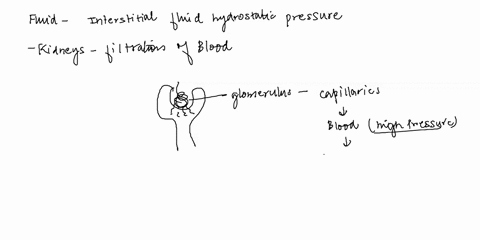 Fluid - Interstitial fluid hydrostatic pressure
- Kidneys - filtration of Blood
glomerulus - capillaries
↓
Blood (high Pressure)
↓